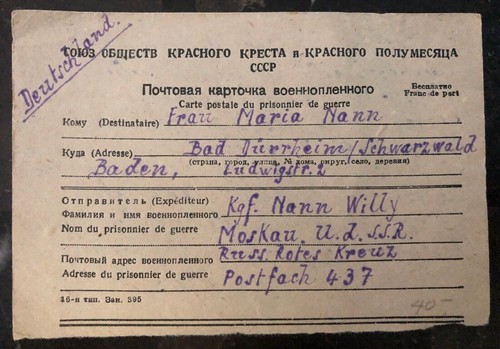 Deutschland.
СОЮЗ ОБЩЕСТВ КРАСНОГО КРЕСТА и КРАСНОГО ПОЛУМЕСЯЦА
СССР
Почтовая карточка военнопленного
Бесплатно
Carte postale du prisonnier de guerre
Franc de port
Кому (Destinataire) Frau Maria Nann
Куда (Adresse) Bad Dürrheim/Schwarzwald
(страна, город, улица, № дома, округ, село, деревня)
Baden, Ludwigstr. 2
Отправитель (Expéditeur) Kgf. Nann Willy
Фамилия и имя военнопленного
Nom du prisonnier de guerre Moskau U.d.S.S.R.
Почтовый адрес военнопленного Russ. Rotes Kreuz
Adresse du prisonnier de guerre Postfach 437
16-я тип. Зак. 395
40-